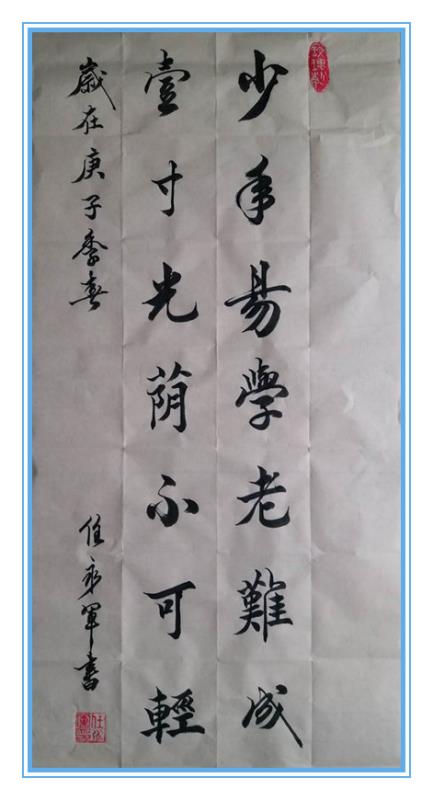 少年易學老難成
壹寸光荫不可輕
歲在庚子季春
任永軍書